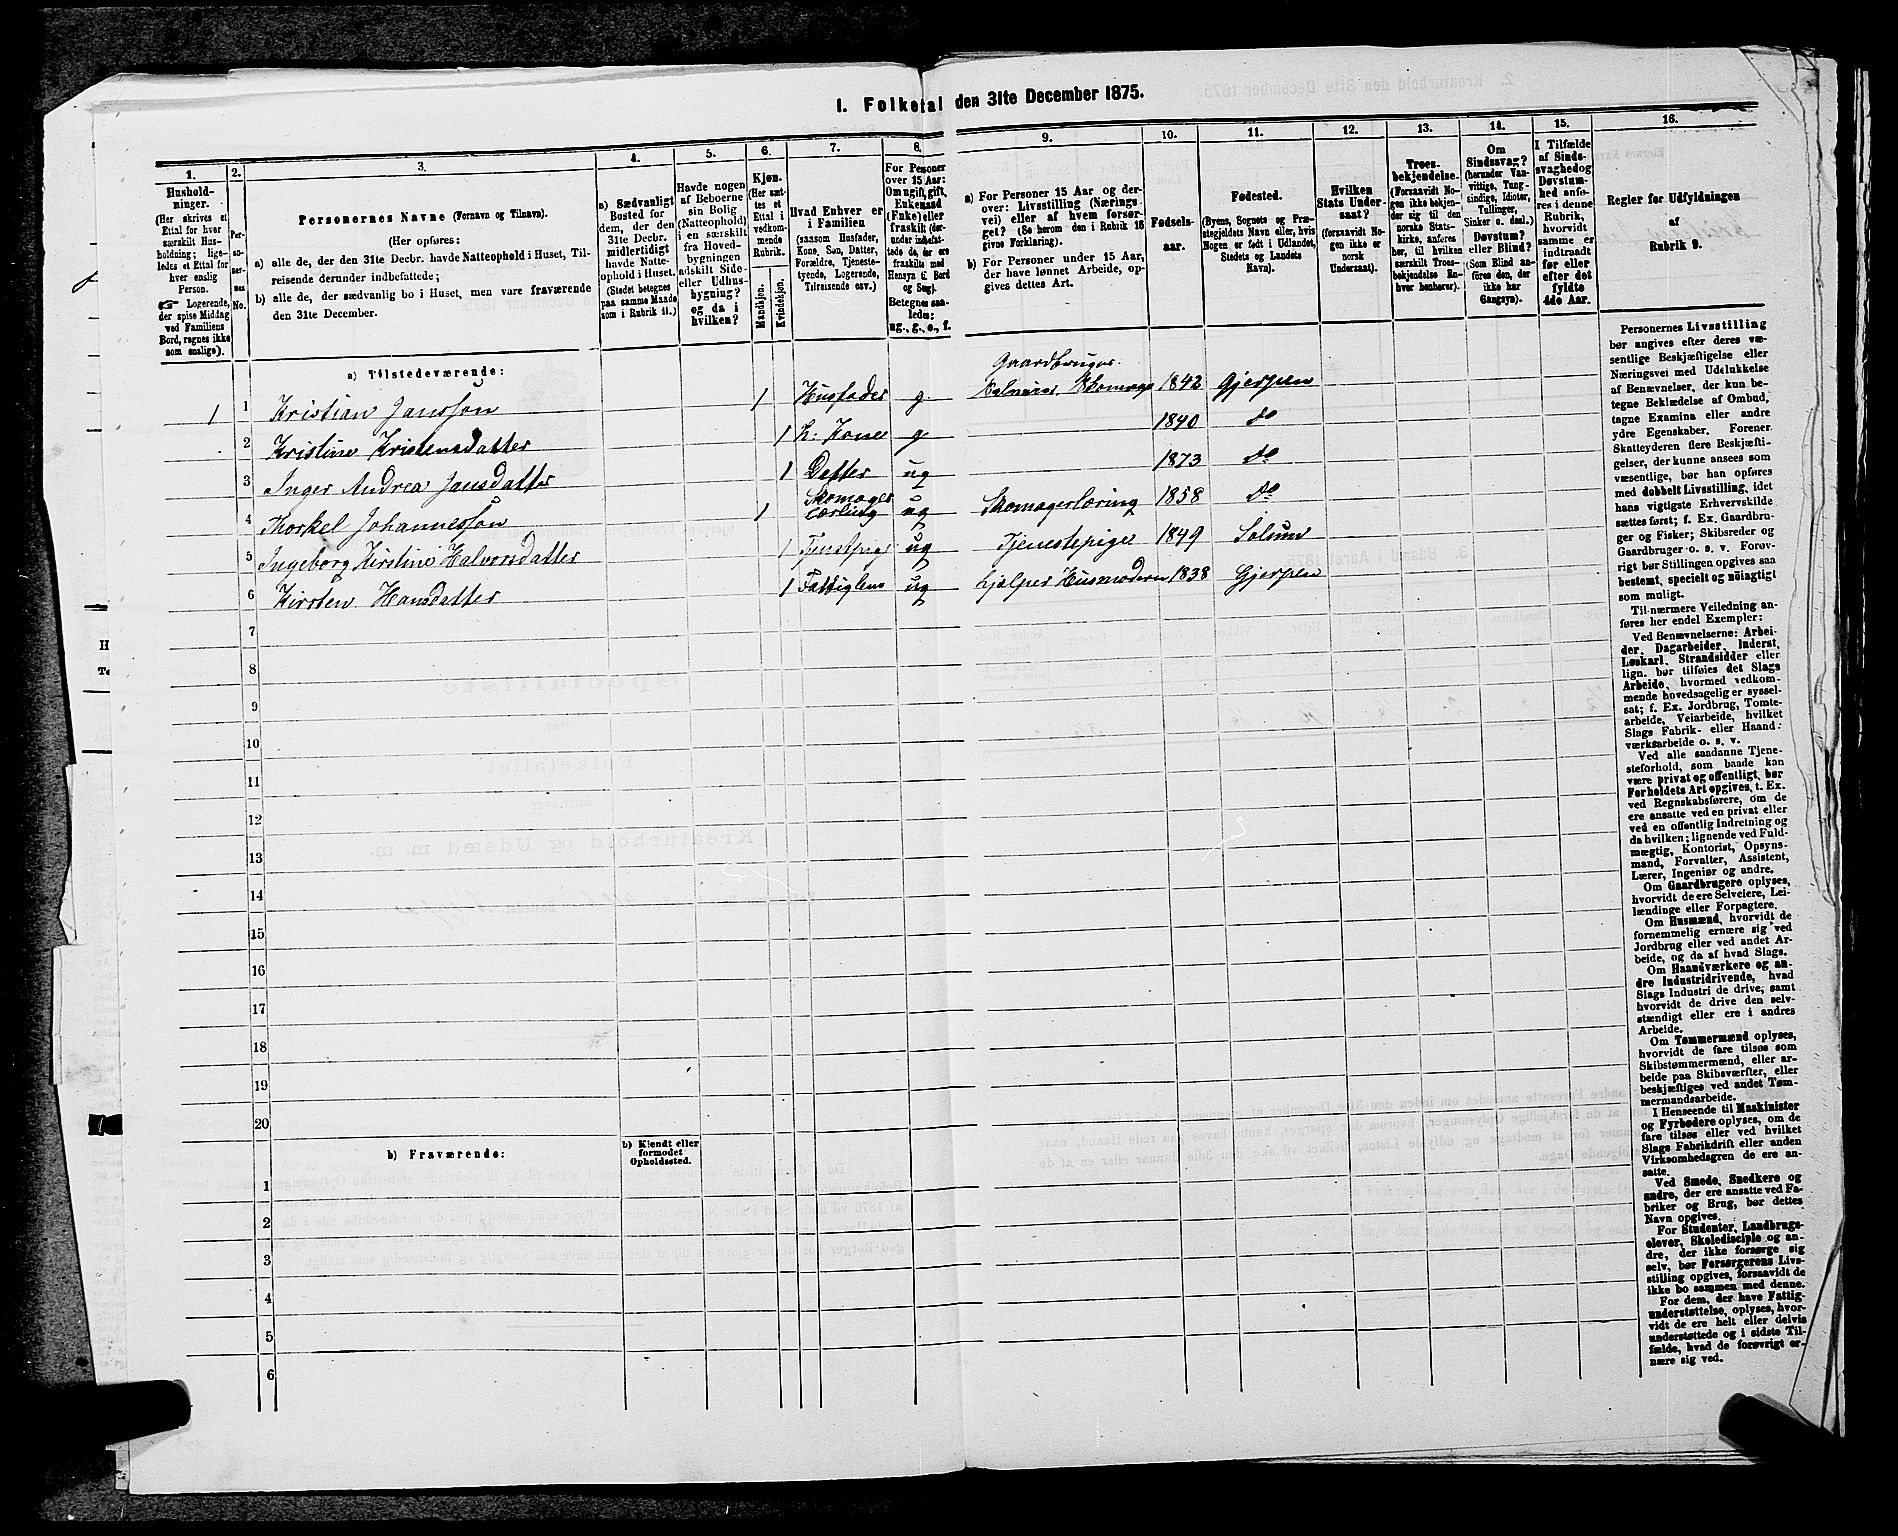 I. Folketal den 31te December 1875.
1. 2. 3. 4. 5. 6. 7. 8. 9. 10. 11. 12. 13. 14. 15. 16.
Hushold-
ninger.
(Her skrives et
Ettal for hver
særskilt Hus-
holdning; lige-
ledes et Ettal for
hver enslig
Person.
☞ Logerende,
der spise Middag
ved Familiens
Bord, regnes ikke
som enslige).
Per-
so-
ner-
nes
No.
Personernes Navne (Fornavn og Tilnavn).
(Her opføres:
a) alle de, der den 31te Decbr. havde Natteophold i Huset, Til-
reisende derunder indbefattede;
b) alle de, der sædvanlig bo i Huset, men vare fraværende
den 31te December.
a) Sædvanligt
Bosted for
dem, der den
31te Decbr.
midlertidigt
havde Natte-
ophold i Huset.
(Stedet betegnes
paa samme Maade
som i Rubrik 11.)
Havde nogen
af Beboerne
sin Bolig
(Natteophold)
i en særskilt
fra Hoved-
bygningen
adskilt Side-
eller Udhus-
bygning?
og da i
hvilken?
Kjøn.
(Her sæt-
tes et
Ettal i
vedkom-
mende
Rubrik.
Mandkjøn.
Kvindekjøn.
Hvad Enhver er
i Familien
(saasom Husfader,
Kone, Søn, Datter,
Forældre, Tjeneste-
tyende, Logerende,
Tilreisende osv.)
For Personer
over 15 Aar:
Om ugift, gift,
Enkemand
(Enke) eller
fraskilt (der-
under indbefat-
tede de, der ere
fraskilte med
Hensyn til Bord
og Seng).
Betegnes saa-
ledes:
ug., g., e., f.
a) For Personer 15 Aar og der-
over: Livsstilling (Nærings-
vei) eller af hvem forsør-
get? (Se herom den i Rubrik 16
givne Forklaring).
b) For Personer under 15 Aar,
der have lønnet Arbeide, op-
gives dettes Art.
Fødsels-
aar.
Fødested.
(Byens, Sognets og Præ-
stegjeldets Navn eller, hvis
Nogen er født i Udlandet,
Stedets og Landets
Navn).
Hvilken
Stats Under-
saat?
(forsaavidt No-
gen ikke er
norsk
Undersaat).
Troes-
bekjendelse.
(Forsaavidt No-
gen ikke bekjen-
der sig til den
norske Stats-
kirke, anføres
her, til hvilken
særskilt Troes-
bekjendelse En-
hver henhører).
Om
Sindssvag?
(herunder Van-
vittige, Tung-
sindige, Idioter,
Tullinger,
Sinker o. desl.)
Døvstum?
eller Blind?
(Som Blind an-
føres den, der
ikke har
Gangsyn).
I Tilfælde
af Sinds-
svaghed og
Døvstum-
hed anfø-
res i denne
Rubrik,
hvorvidt
samme er
indtraadt
før eller
efter det
fyldte
4de Aar.
Regler for Udfyldningen
af
Rubrik 9.
a) Tilstedeværende:
Gaardbruger
1 1 Kristian Jansson 1 Husfader g. Selveier, Skomager 1842 Gjerpen
2 Kristine Kristensdatter 1 h. Kone g 1840 do
3 Inger Andrea Jansdatter 1 Detter ug 1873 Do
4 Thorkel Johannesson 1 Skomager Lærling ug Skomagerlæring 1858 Do
5 Ingeborg Kirstine Halvorsdatter 1 Tjenstpige ug Tjenestepige 1849 Solum
6 Kirsten Hansdatter 1 Fattiglem ug hjelper Husmodern 1838 Gjerpen
7
8
9
10
11
12
13
14
15
16
17
18
19
20
b) Fraværende:
b) Kjendt eller
formodet
Opholdssted.
1
2
3
4
5
6
Personernes Livsstilling
bør angives efter deres væ-
sentlige Beskjæftigelse eller
Næringsvei med Udelukkelse
af Benævnelser, der kun be-
tegne Beklædelse af Ombud,
tagne Examina eller andre
ydre Egenskaber. Forener
Skatteyderen flere Beskjæfti-
gelser, der kunne ansees som
væsentlige, bør han opføres
med dobbelt Livsstilling, idet
hans vigtigste Erhvervskilde
sættes først; f. Ex. Gaardbru-
ger og Fisker; Skibsreder og
Gaardbruger o. s. v. Forøv-
rigt bør Stillingen opgives saa
bestemt, specielt og nøiagtigt
som muligt.
Til nærmere Veiledning an-
føres her endel Exempler:
Ved Benævnelserne: Arbei-
der, Dagarbeider, Inderst,
Løskarl, Strandsidder eller
lign. bør tilføies det Slags
Arbeide, hvormed vedkom-
mende hovedsagelig er syssel-
sat; f. Ex. Jordbrug, Tomte-
arbeide, Veiarbeide, hvilket
Slags Fabrik- eller Haand-
værksarbeide o. s. v.
Ved alle saadanne Tjene-
steforhold, som baade kan
være privat og offentligt, bør
Forholdets Art opgives, t. Ex.
ved Regnskabsførere, om de
ere ansatte ved en privat eller
ved en offentlig Indretning og
da hvilken; lignende ved Fuld-
mægtig, Kontorist, Opsyns-
mand, Forvalter, Assistent,
Lærer, Ingeniør og andre.
Om Gaardbrugere oplyses,
hvorvidt de ere Selveiere, Lei-
lændinge eller Forpagtere.
Om Husmænd, hvorvidt de
fornemmelig ernære sig ved
Jordbrug eller ved andet Ar-
beide, og da af hvad Slags.
Om Haandværkere og an-
dre Industridrivende, hvad
Slags Industri de drive, samt
hvorvidt de drive den selv-
stændigt eller ere i andres
Arbeide.
Om Tømmermænd oplyses,
hvorvidt de fare tilsøs som
Skibstømmermænd, eller ar-
beide paa Skibsværfter, eller
beskjæftiges ved andet Tøm-
mermandsarbeide.
I Henseende til Maskinister
og Fyrbødere oplyses, om de
fare tilsøs eller ved hvilket
Slags Fabrikdrift eller anden
Virksomhedsgren de ere an-
satte.
Ved Smede, Snedkere og
andre, der ere ansatte ved Fa-
briker og Brug, bør dettes
Navn opgives.
For Studenter, Landbrugs-
elever, Skoledisciple og an-
dre, der ikke forsørge sig
selv, bør Forsørgerens Livs-
stilling opgives, forsaavidt de
ikke bo sammen med denne.
For dem, der have Fattig-
understøttelse, oplyses, hvor-
vidt de ere helt eller delvis
understøttede og i sidste Til-
fælde, hvad de forøvrigt er-
nære sig ved.